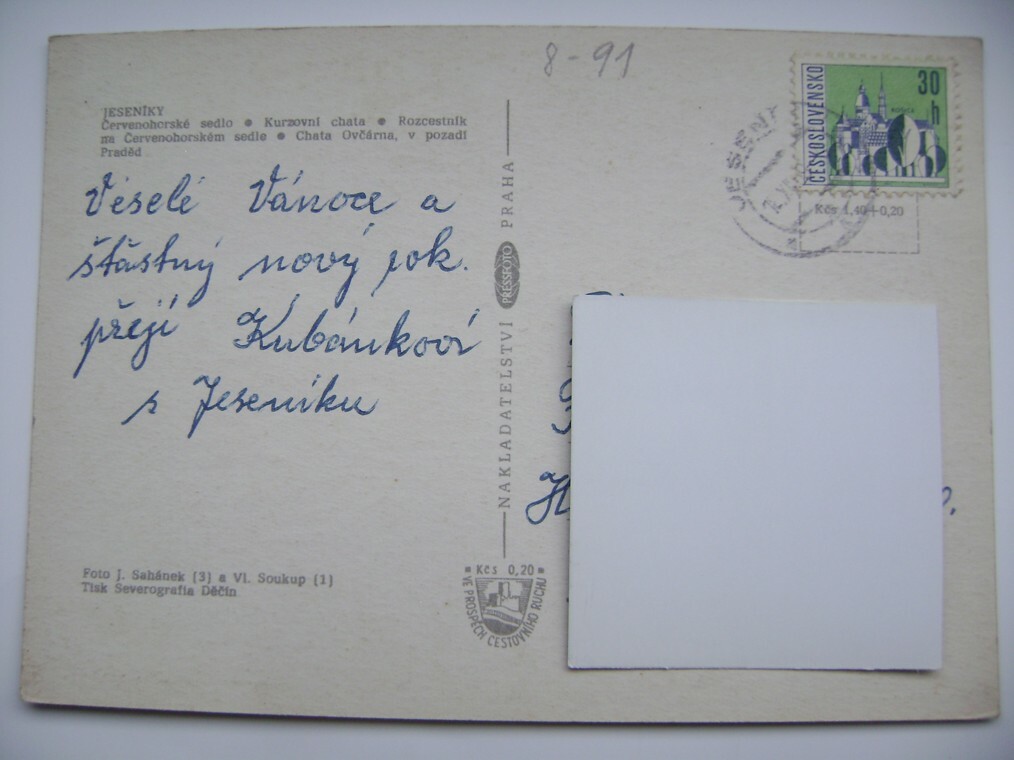 8-91
JESENÍKY
Červenohorské sedlo ● Kurzovní chata ● Rozcestník
na Červenohorském sedle ● Chata Ovčárna, v pozadí
Praděd
Veselé Vánoce a
štastný nový rok.
přejí Kubánkovi
z Jeseníku
Foto J. Sahánek (3) a Vl. Soukup (1)
Tisk Severografia Děčín
NAKLADATELSTVÍ PRESSFOTO PRAHA
Kčs 0,20
VE PROSPĚCH CESTOVNÍHO RUCHU
ČESKOSLOVENSKO
30 h
JESENÍK
Kčs 1,40+0,20